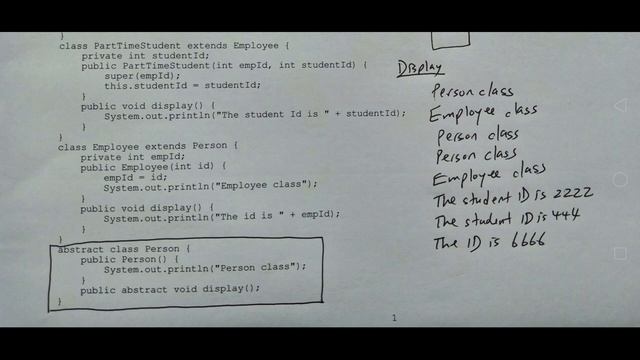 }
class PartTimeStudent extends Employee {
private int studentId;
public PartTimeStudent(int empId, int studentId) {
super(empId);
this.studentId = studentId;
}
public void display() {
System.out.println("The student Id is " + studentId);
}
}
class Employee extends Person {
private int empId;
public Employee(int id) {
empId = id;
System.out.println("Employee class");
}
public void display() {
System.out.println("The id is " + empId);
}
}
abstract class Person {
public Person() {
System.out.println("Person class");
}
public abstract void display();
}
1
Display
Person class
Employee class
Person class
Person class
Employee class
The student ID is 2222
The student ID is 444
The ID is 6666